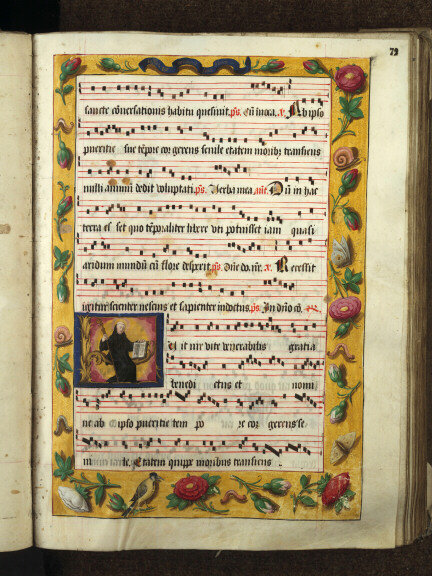 79
sancte cōuersationis habitu quesiuit. ps. Cū inuoca. v. Ab ipso
puericie sue tēpore cor gerens senile etatem moribꝫ transiens
nulli animum dedit voluptati. ps. Verba mea. aut̄. Dū in hac
terra esset quo tēporaliter libere vti potuisset iam quasi
aridum mundū cū flore despexit. ps. Dn̄e do. nr̄. a. Recessit
igitur scienter nesciens et sapienter indoctus. ps. In dn̄o cō.
uit uir vite venerabilis gratia
benedictus et nomi
ne ab ipso puericie tempore cor gerens se
nile. Etatem quippe moribus transiens